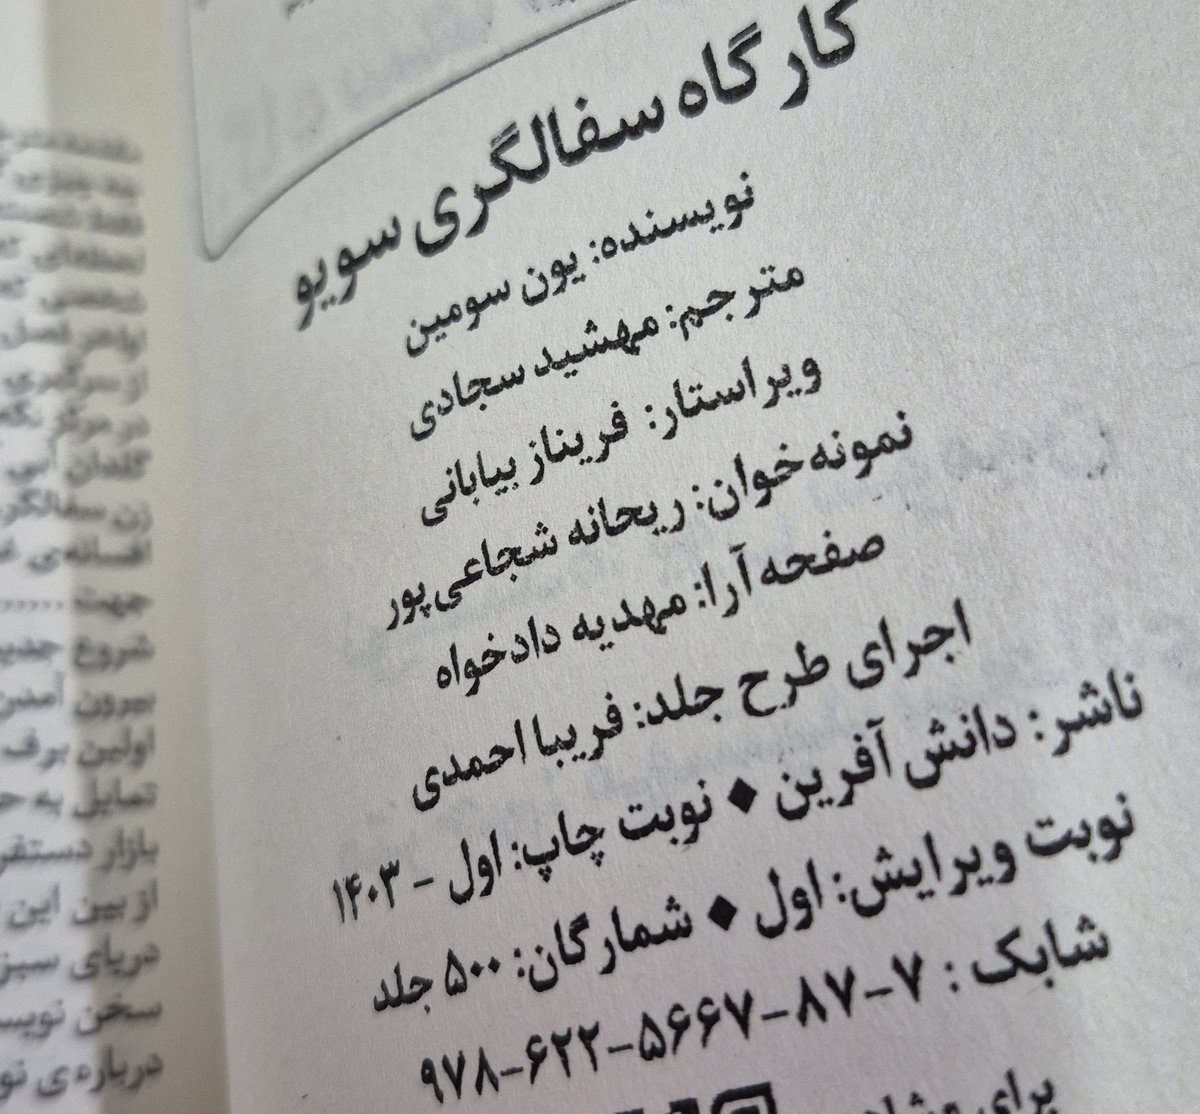 کارگاه سفالگری سویو
نویسنده: یون سومین
مترجم: مهشید سجادی
ویراستار: فریناز بیابانی
نمونه‌خوان: ریحانه شجاعی‌پور
صفحه‌آرا: مهدیه دادخواه
اجرای طرح جلد: فریبا احمدی
ناشر: دانش آفرین ◆ نوبت چاپ: اول – ۱۴۰۳
نوبت ویرایش: اول ◆ شمارگان: ۵۰۰ جلد
شابک : ۷-۸۷-۵۶۶۷-۶۲۲-۹۷۸
برای
لحظه‌ای که
از سرگیری
گلدان آبی
زن سفالگر
افسانه‌ی
جهت ......
شروع جدید
بیرون آمدن
اولین برف
تمایل به
بازار
از بین این
دریای سبز
سخن
درباره‌ی